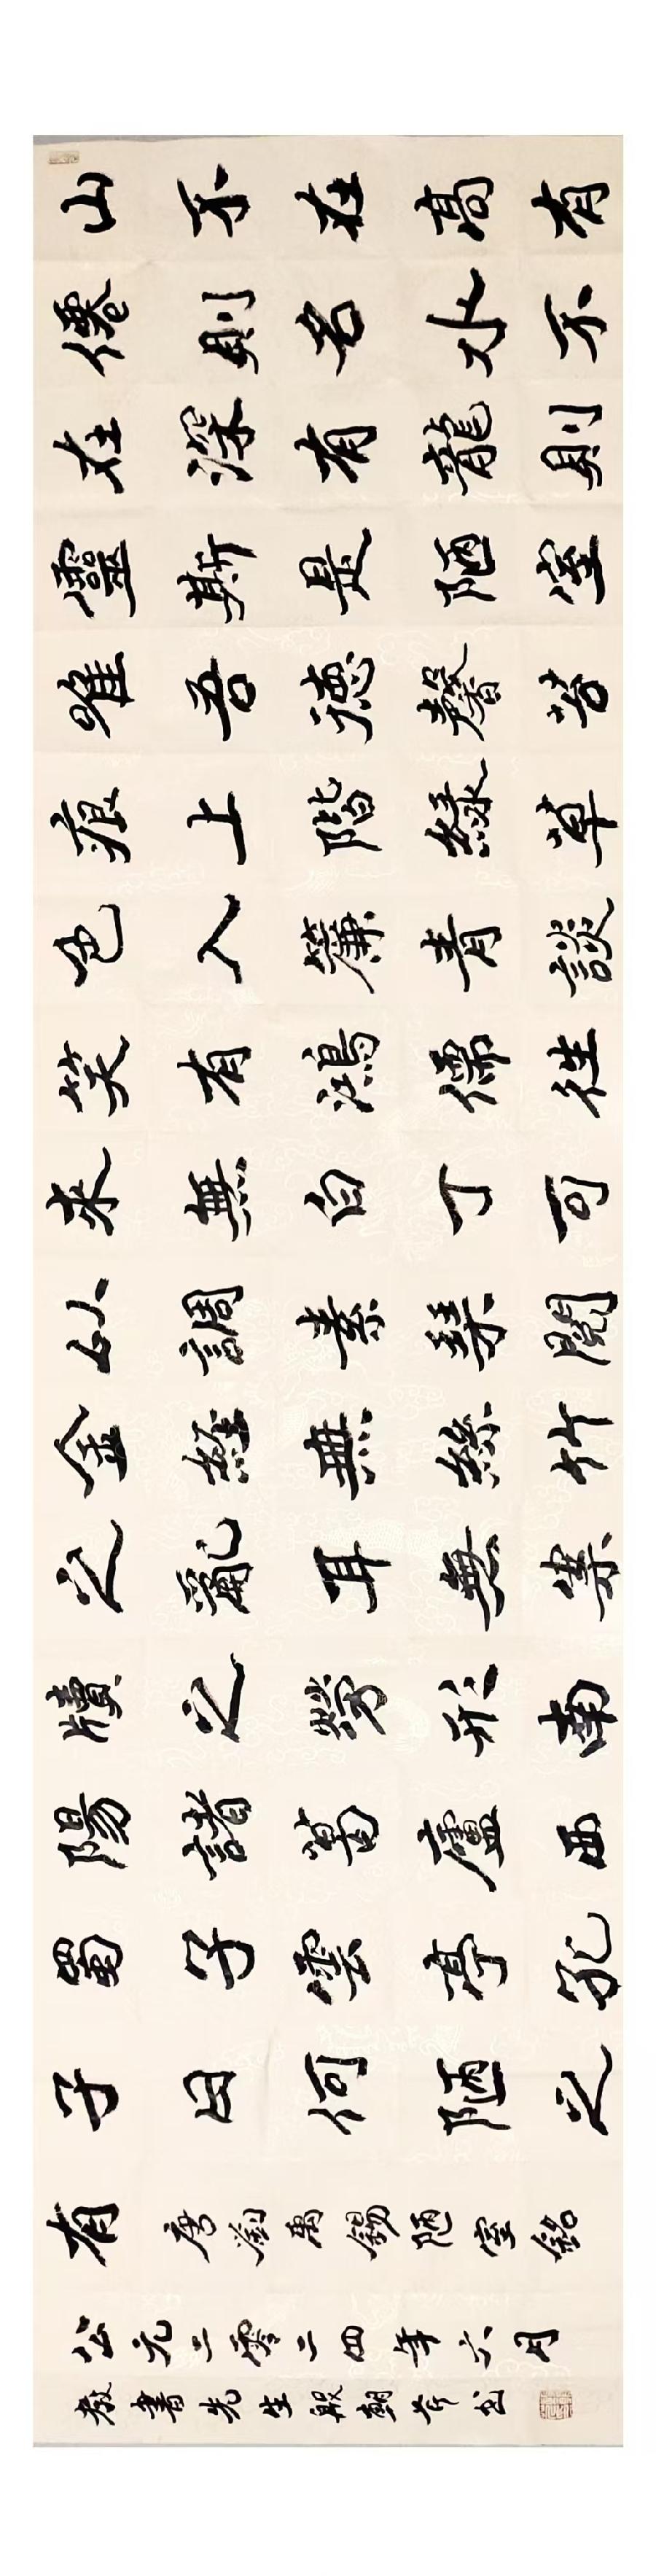 山不在高有
僊則名水不
在深有龍則
靈斯是陋室
唯吾德馨苔
痕上階綠草
色入簾青談
笑有鴻儒往
來無白丁可
以調素琴閱
金經無絲竹
之亂耳無案
牘之勞形南
陽諸葛廬西
蜀子雲亭孔
子曰何陋之
有唐劉禹錫陋室銘
公元二零二四年六月
教書先生殷朝书